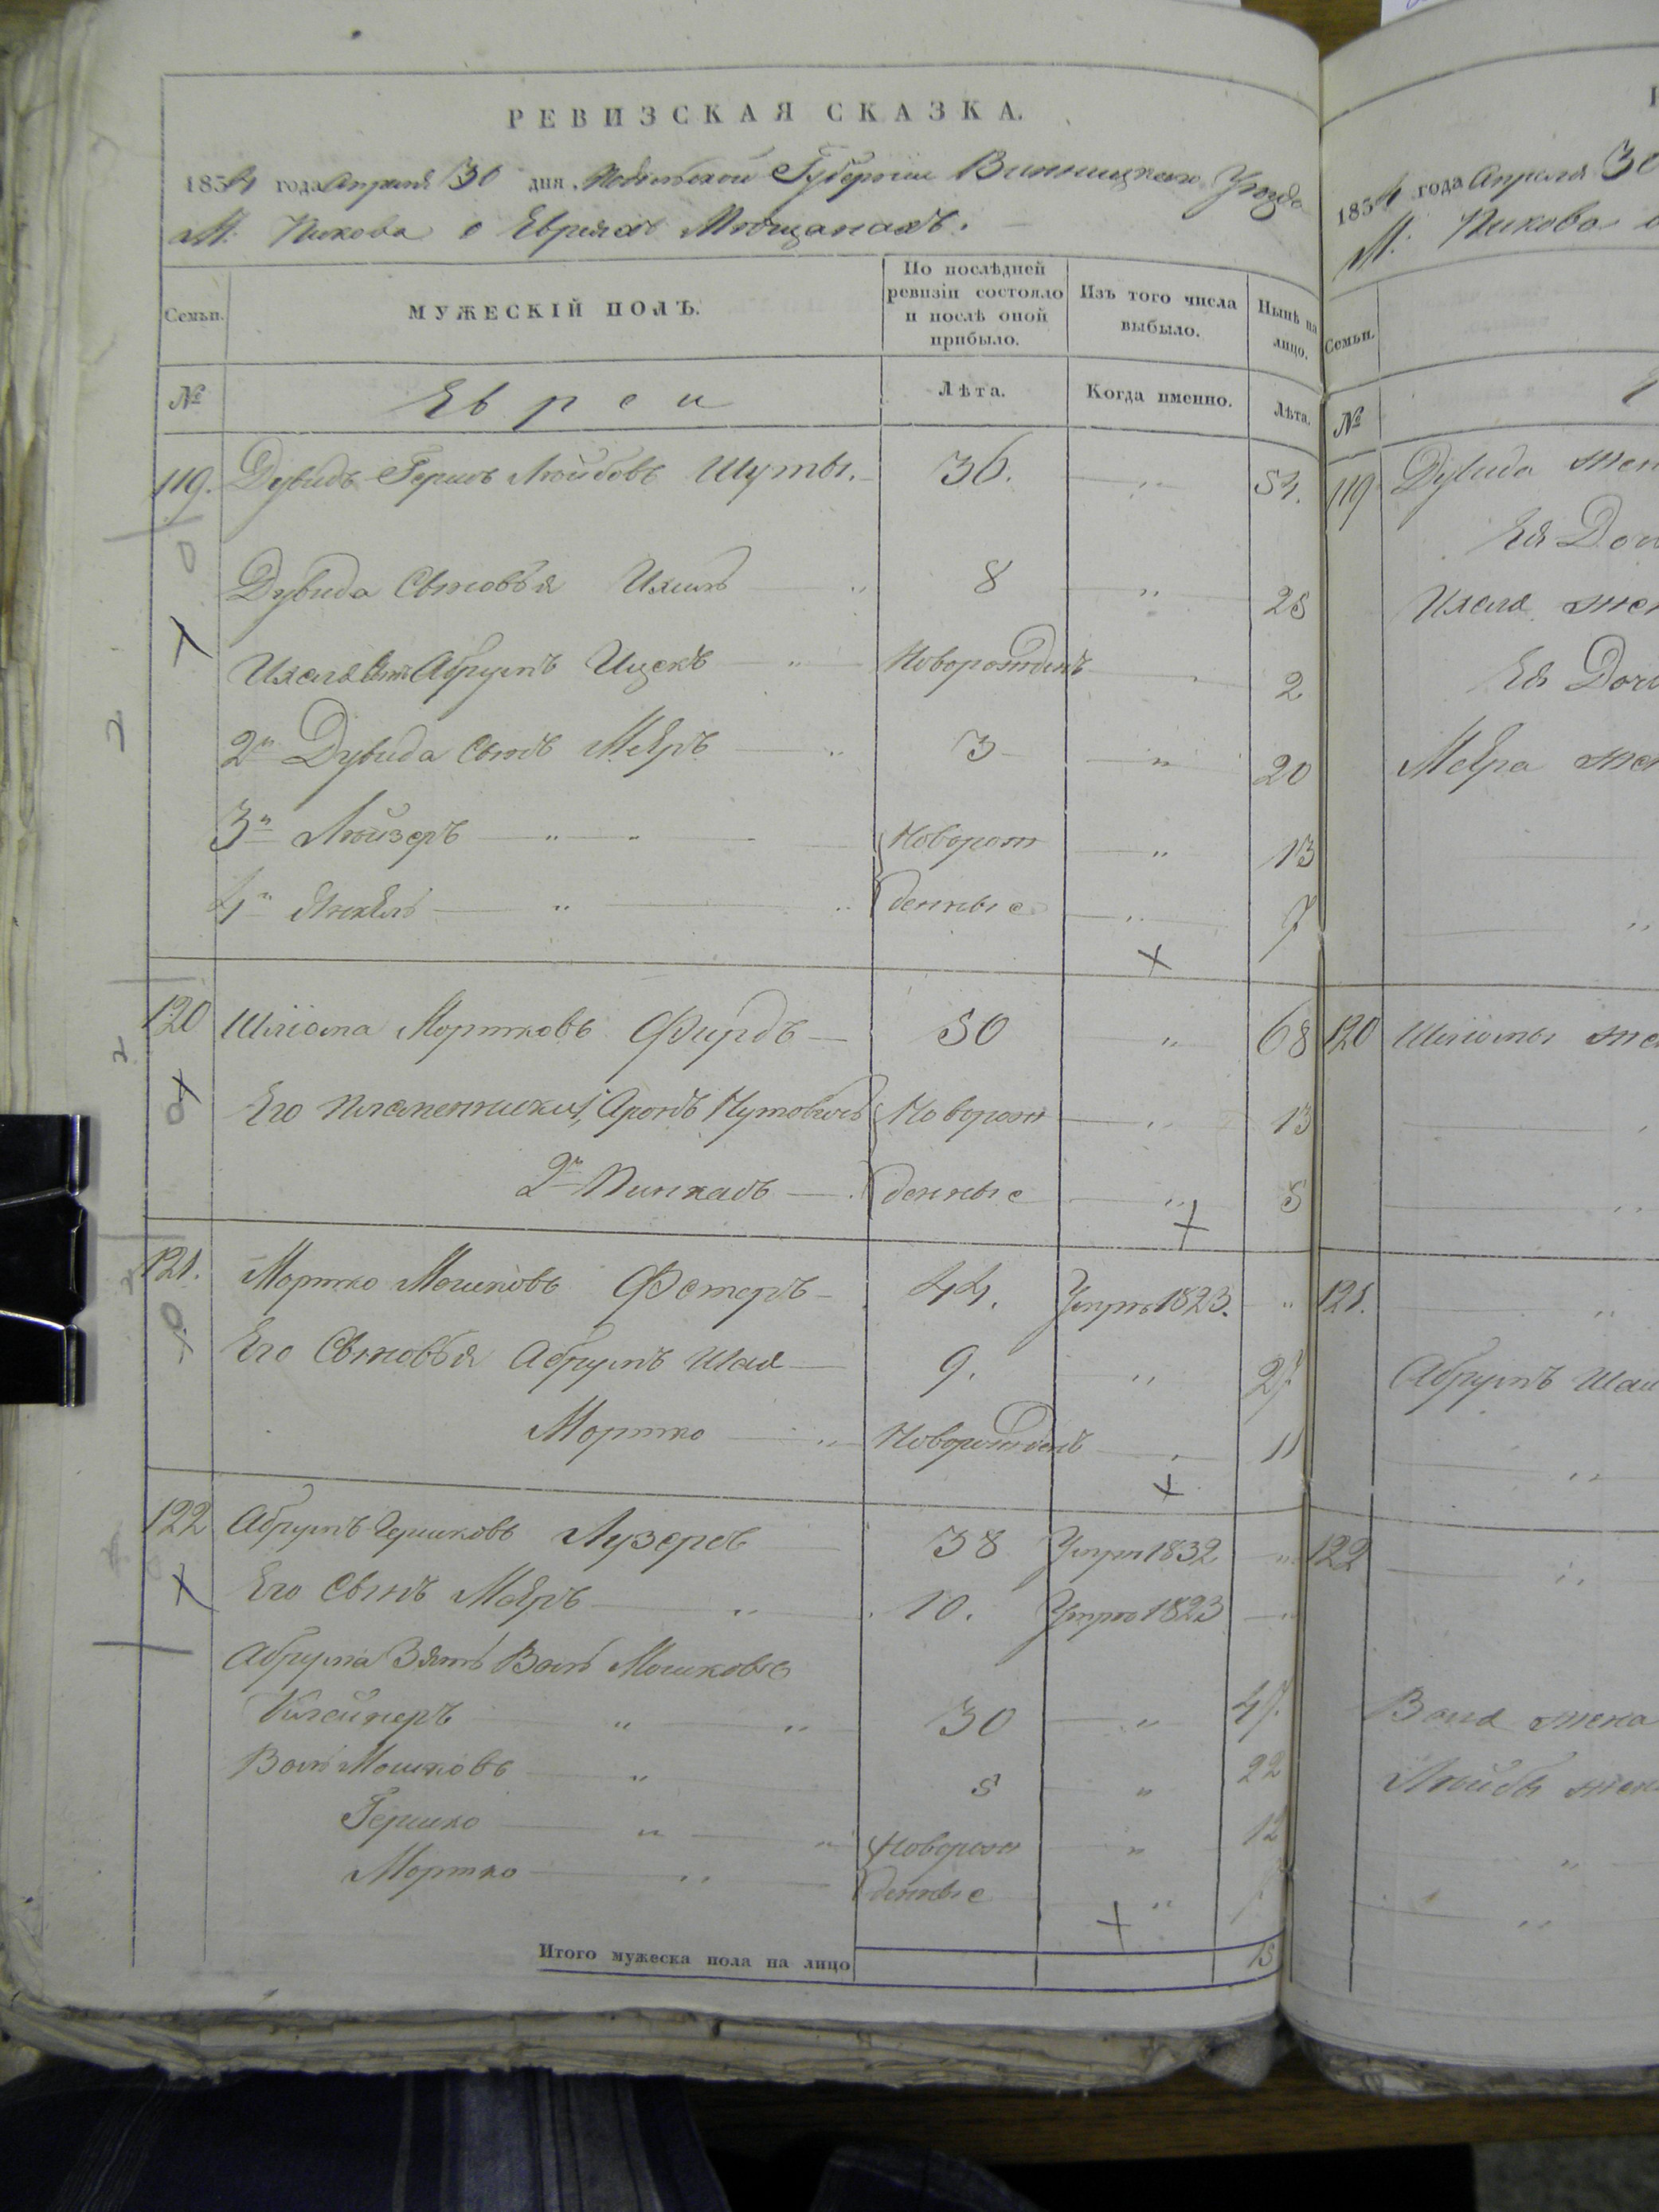 РЕВИЗСКАЯ СКАЗКА.
1854 года Апреля 30 дня Подольской Губернии Винницкаго Уезда
М. Пикова о Евреяхъ Мещанахъ.
Семьи.
МУЖЕСКІЙ ПОЛЪ.
По послѣдней ревизіи состояло и послѣ оной прибыло.
Изъ того числа выбыло.
Нынѣ на лицо.
№
Евреи
Лѣта.
Когда именно.
Лѣта.
119. Дувидъ Гершъ Лейбовъ Шутъ. 36. " 54.
Дувида Сыновья Ихилъ " 8 " 25
Ихеля Сынъ Абрумъ Ицекъ " Новорожденъ " 2
2й Дувида Сынъ Меѣръ " 3 " 20
3й Лейзеръ " " Новорож " 13
4й Янкель " " денные " 7
120 Шліома Мортковъ Фирдъ 50 " 68
Его племенники, Аронъ Нутовичъ Новорож " 13
2й Пинхасъ денные " 5
121. Мортко Мошковъ Фетеръ 44. Умръ 1823. "
Его Сыновья Абрумъ Шая 9. " 27
Мортко " Новорожденъ " 11
122 Абрумъ Гершковъ Лузеръ 38 Умръ 1832 "
Его Сынъ Меѣръ " 10. Умръ 1823 "
Абрума Зять Воль Мошковъ
Клейнеръ " " 30 " 47.
Воль Мошковъ " 5 " 22
Гершко " " Новорож " 12
Мортко " денные "
Итого мужеска пола на лицо 15
1854 года Апреля 30
М. Пикова
Семьи.
№
119 Дувида жен
Ихеля жен
Меѣра жен
120 Шліомы же
121. "
Абрумъ Шаи
122 "
Воля жена
Лейбы жен